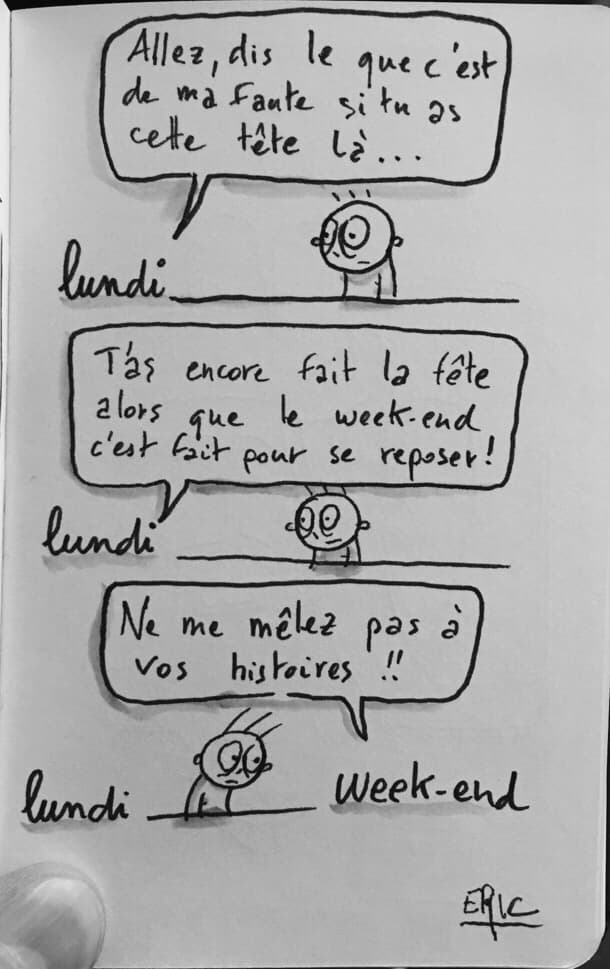 Allez, dis le que c'est
de ma faute si tu as
cette tête là...
lundi
T'as encore fait la fête
alors que le week-end
c'est fait pour se reposer!
lundi
Ne me mêlez pas à
vos histoires !!
lundi
week-end
ERIC